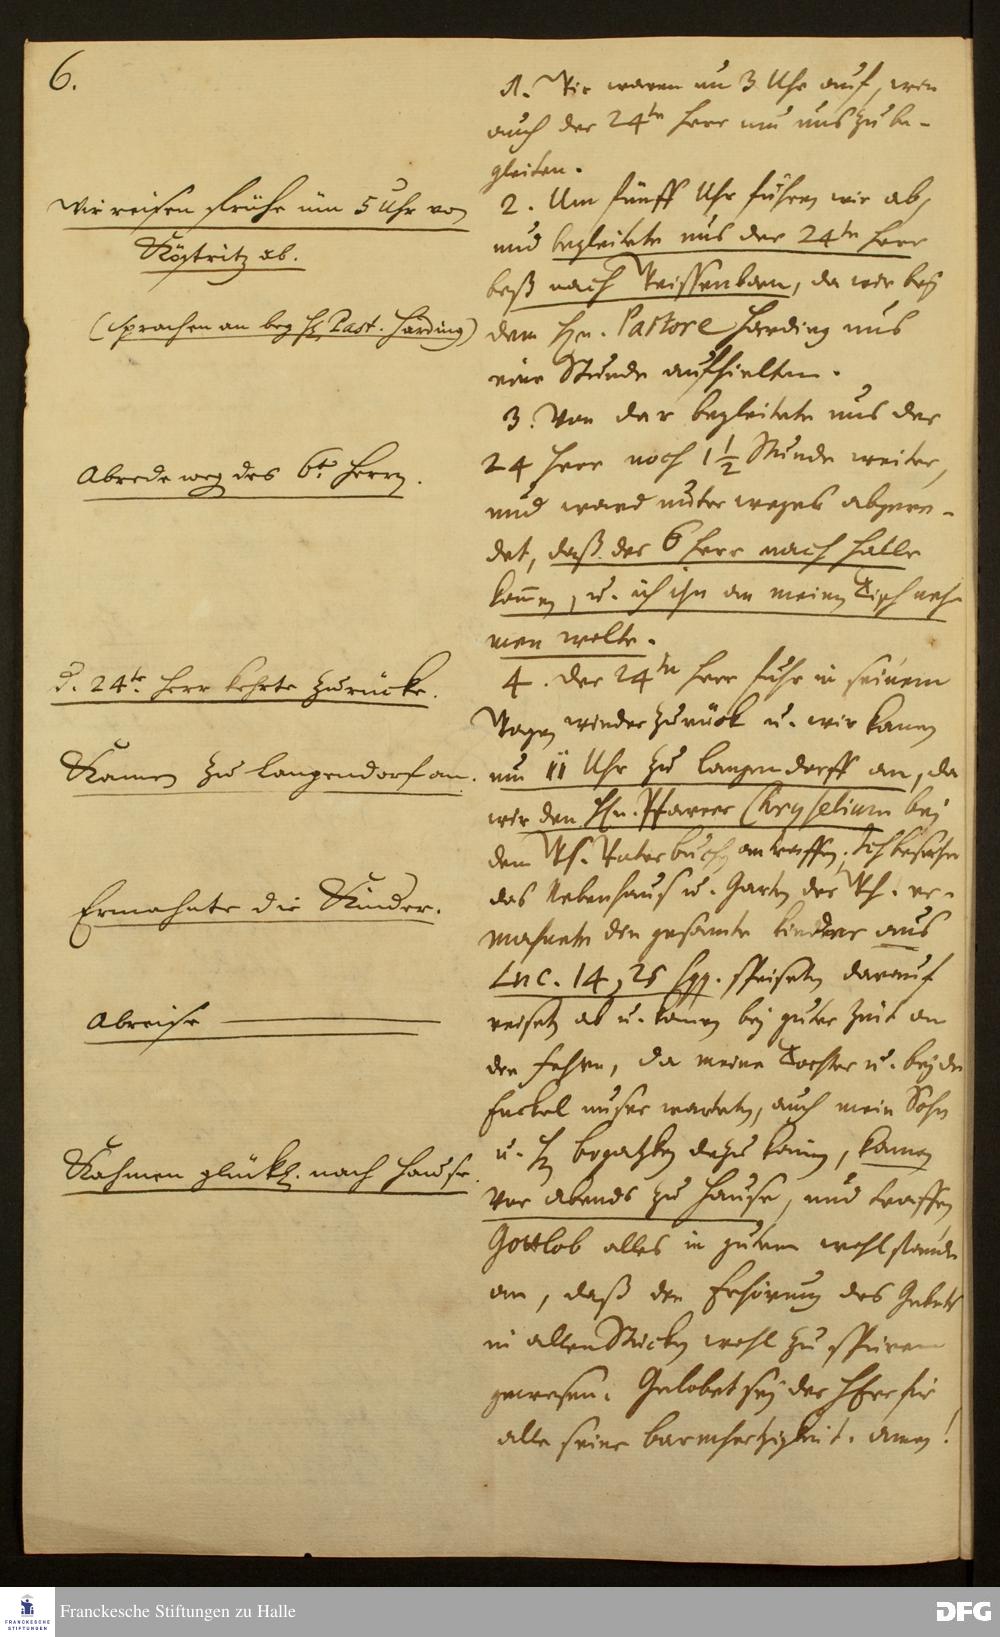 6.
Wir reisen Frühe um 5 Uhr von
Köstritz ab.
(sprachen an bey H. Past. Harding)
Abrede weg. des 6t. Herrn.
d. 24te. Herr kehrte zurücke.
Kamen zu Langendorf an.
Ermahnte die Kinder.
Abreise
Kahmen glückl. nach Hause.
1. Wir waren um 3 Uhr auf, wie
auch der 24te Herr um uns zu be-
gleiten.
2. Um fünff Uhr fuhren wir ab,
und begleitete uns der 24te Herr
biß nach Weissenborn, da wir bey
dem Hn. Pastore Harding uns
eine Stunde aufhielten.
3. Von dar begleitete uns der
24 Herr noch 1 1/2 Stunde weiter,
und ward unterweges abgere-
det, daß der 6 Herr nach Halle
komen, u. ich ihn an meinen Tisch neh-
men wolte.
4. Der 24te Herr fuhr in seinem
Wagen wieder zurück u. wir kamen
um 11 Uhr zu Langendorff an, da
wir den Hn. Pfarrer Chryselium bey
dem antraffen. Ich besahe
das Nebenhaus u. Garten des er-
mahnete die gesamte Kinder aus
Luc. 14, 25 sqq. speiseten darauf
reiseten ab u. kamen bey guter Zeit an
die Fehre, da meine Tochter u. beyde
Enckel unser warteten, auch mein Sohn
u. H. dazu kamen, kamen
vor abends zu Hause, und traffen
Gottlob alles in gutem wohlstande
an, daß die Erhörung des Gebets
in allen Stücken wohl zu spüren
gewesen. Gelobet sey der HErr für
alle seine Barmhertzigkeit. Amen!
Franckesche Stiftungen zu Halle
FRANCKESCHE
STIFTUNGEN
DFG